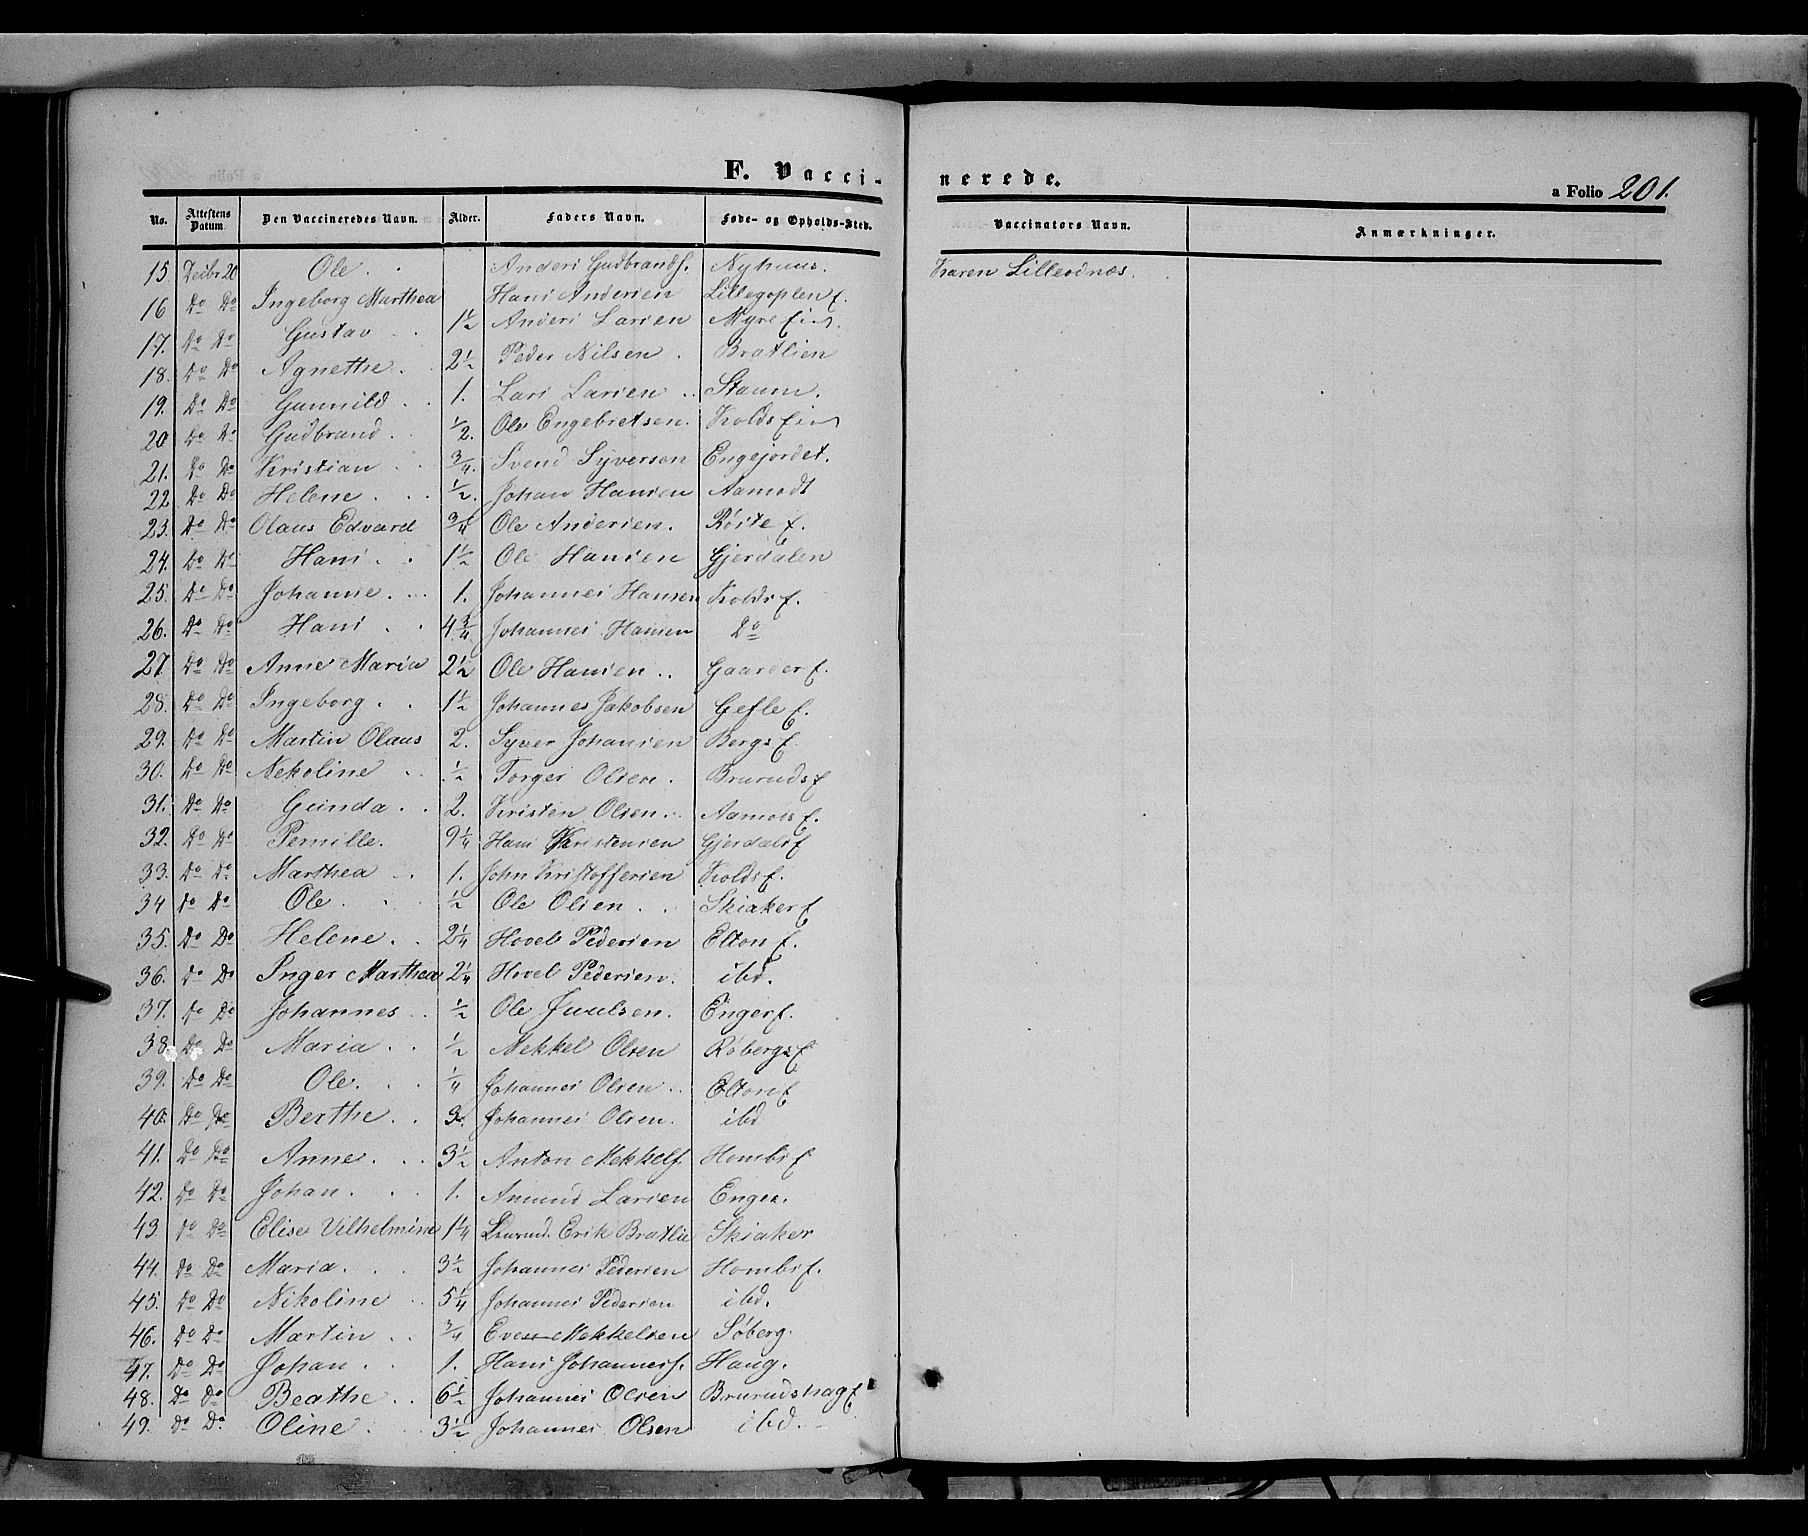 F. Vacci-
nerede.
a Folio 201.
No. Attestens Datum Den Vaccineredes Navn. Alder. Faders Navn. Føde- og Opholds-Sted. Vaccinators Navn. Anmærkninger.
15. Decbr 20 Ole. Anders Gudbrands. Nyhuus. Karen Lillerdnæs
16 Do Do Ingeborg Marthea Hans Andersen Lillegoplen f.
17. Do Do Gustav 1½ Anders Larsen Myre
18. Do Do Agnethe. 2½ Peder Nilsen. Bratlien
19. Do Do Gunnild 1. Lars Larsen Staum.
20 Do Do Gudbrand. ½. Ole Engebretsen. Kolds
21. Do Do Kristian ¾. Svend Syversen Engejordet.
22 Do Do Helene. ½. Johan Hansen Aamodt
23. Do Do Olaus Edvard ¾ Ole Andersen. Røste f.
24. Do Do Hans. 1½ Ole Hansen Gjerdalen
25. Do Do Johanne. 1. Johannes Hansen Kolds f.
26. Do Do Hans 4¾ Johannes Hansen Do
27. Do Do Anne Maria 2½ Ole Hansen. Gaarder f.
28. Do Do Ingeborg. 1½ Johannes Jakobsen Gefle f.
29. Do Do Martin Olaus 2. Syver Johansen Bergs f.
30. Do Do Nekoline ½ Torger Olsen. Bruruds f
31. Do Do Gunda. 2. Kristen Olsen. Aamots f.
32. Do Do Pernille. 9¼ Hans Kristensen Gjerdals f
33. Do Do Marthea 1. John Kristoffersen Kolds f.
34 Do Do Ole. ½ Ole Olsen. Skiaker f
35. Do Do Helene. 2¼ Hovel Pedersen Elton f.
36. Do Do Inger Marthea 2¼ Hovel Pedersen. ibd.
37. Do Do Johannes ½ Ole Juulsen. Enger f.
38 Do Do Maria. ½ Mekkel Olsen Røbergs f
39. Do Do Ole. ¼ Johannes Olsen. Elton f
40. Do Do Berthe. 3. Johannes Olsen. ibd
41. Do Do Anne. 3½ Anton Mekkels. Hombs f
42. Do Do Johan. 1. Amund Larsen Enger.
43. Do Do Elise Vilhelmine 1¼ Erik Bratlie Skiaker
44. Do Do Maria. 3½ Johannes Pedersen Hombs f.
45. Do Do Nikoline 5¼ Johannes Pedersen ibd.
46. Do Do Martin ¾ Even Mekkelsen Søberg.
47. Do Do Johan. 1. Hans Johanness. Haug.
48. Do Do Beathe 6½ Johannes Olsen Brurudshag f
49. Do Do Oline 3½ Johannes Olsen ibd.